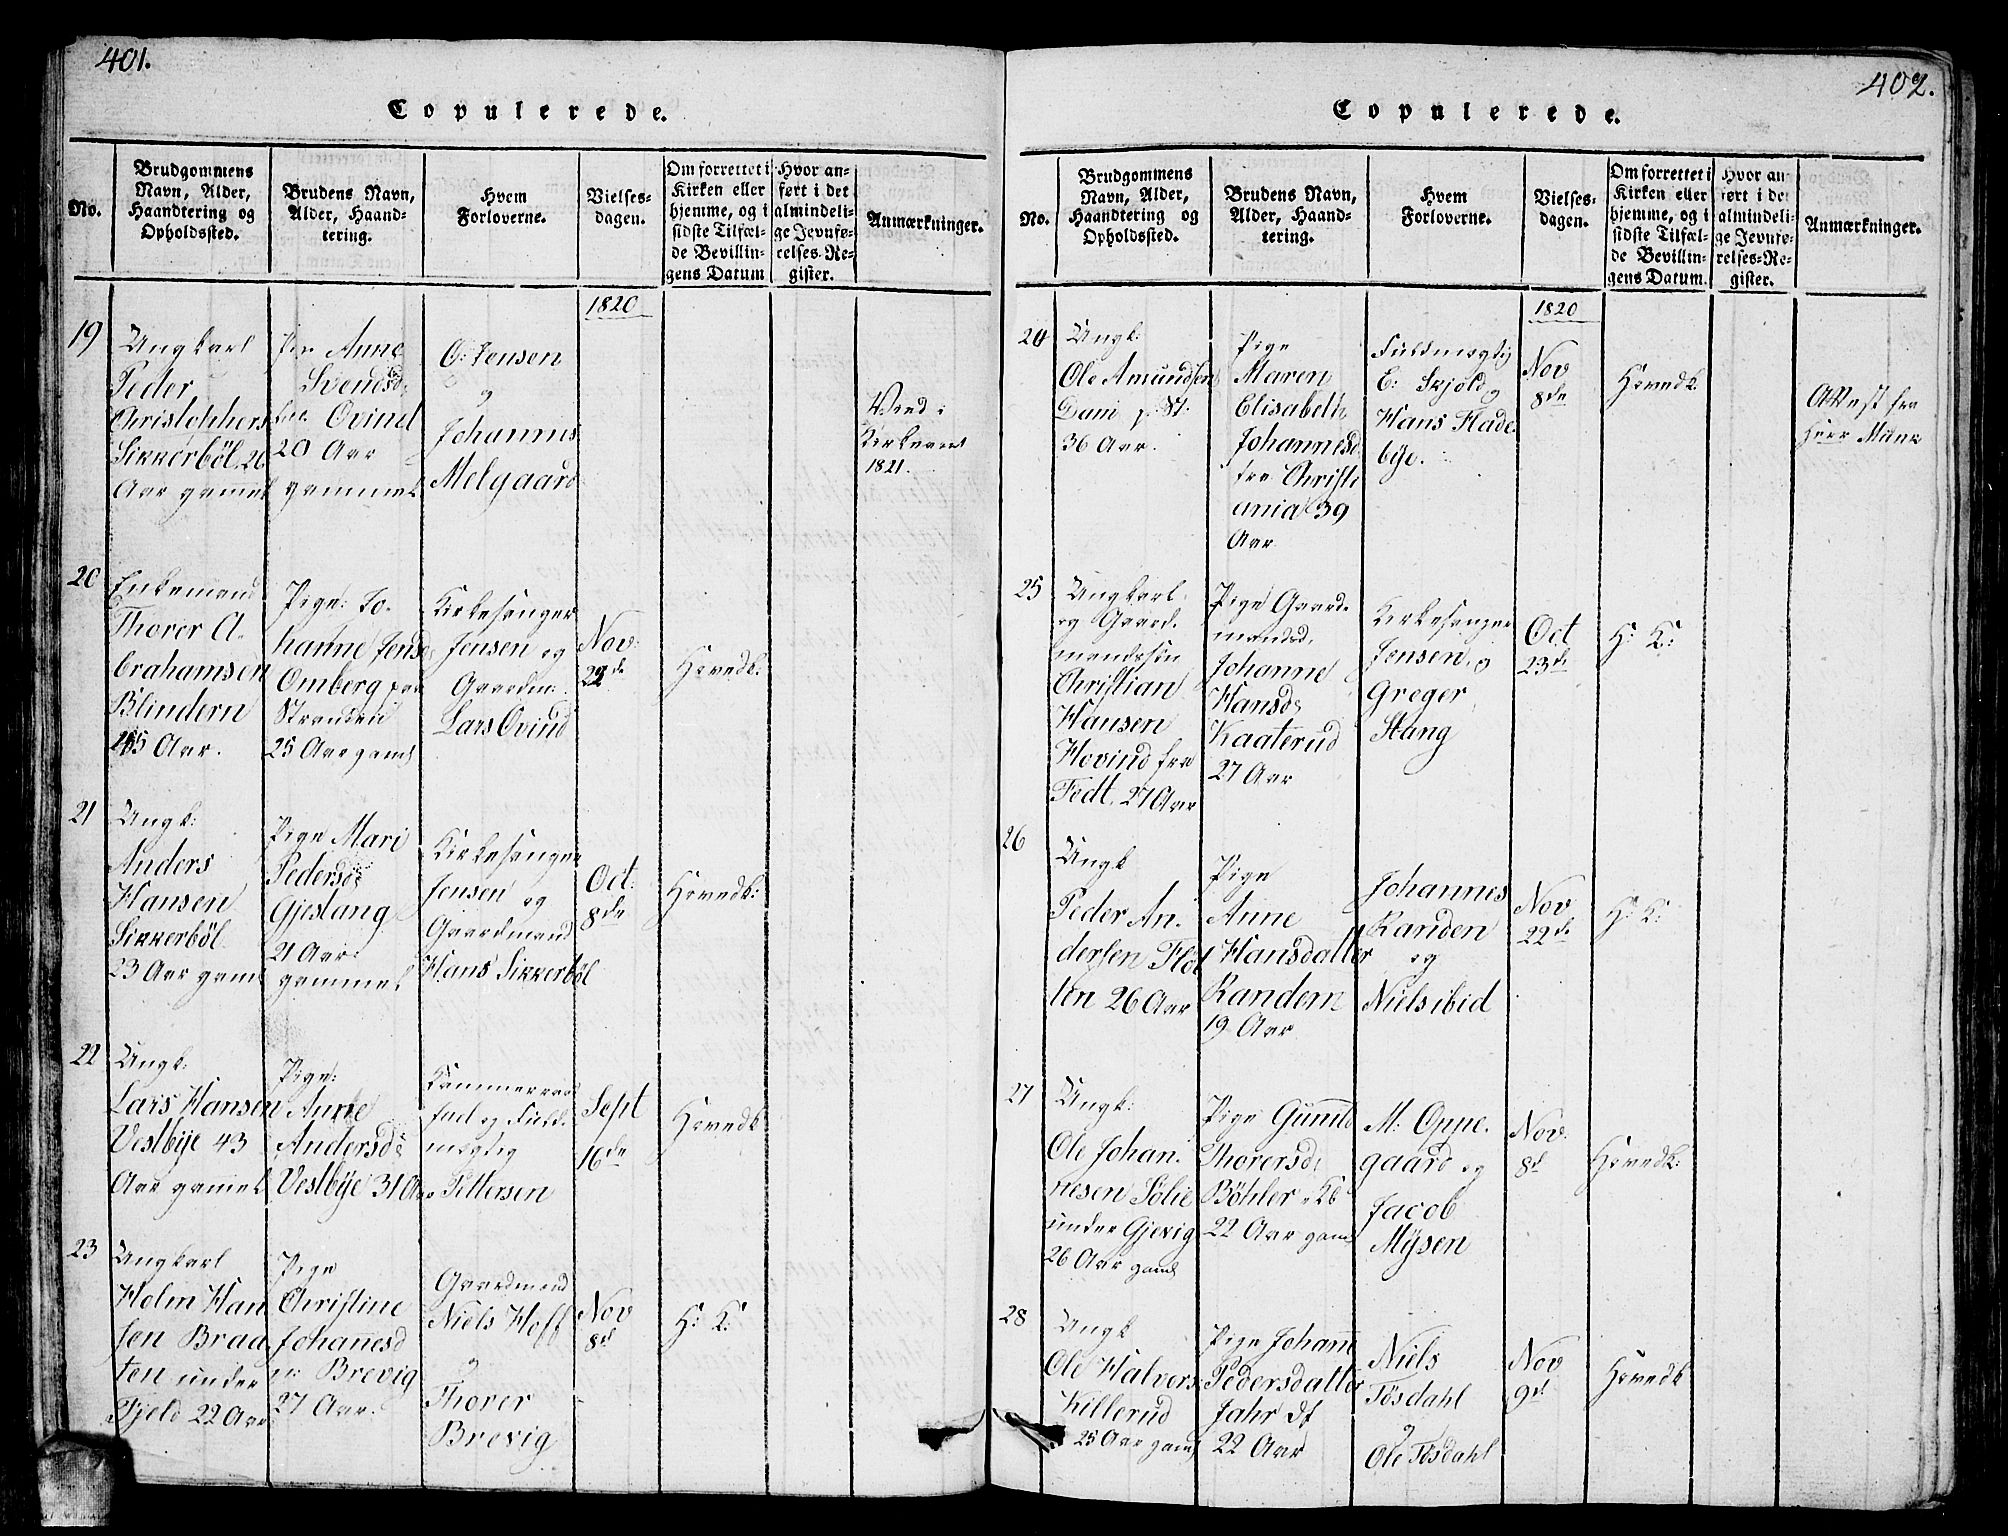 401.
Copulerede.
No.
Brudgommens
Navn, Alder,
Haandtering og
Opholdssted.
Brudens Navn,
Alder, Haand-
tering.
Hvem
Forloverne.
Vielses-
dagen.
Om forrettet i
Kirken eller
hjemme, og i
sidste Tilfæl-
de Bevillin-
gens Datum
Hvor an-
ført i det
almindeli-
ge Jevnfø-
relses-Re-
gister.
Anmærkninger.
1820
19
Ungkarl
Peder
Christophers
Sikkerböl 26
Aar gamel
Anne
Svendsd
Ovind
20 Aar
gammel
O: Jensen
og
Johannes
Melgaard
Vied i
Kirken
1821.
20
Enkemand
Thorer A-
brahamsen
Blindern
Aar.
Pige: Jo-
hanne Jensd
Omberg fra
25 Aar gaml
Kirkesanger
Jensen og
Gaardm:
Lars Ovind
Nov:
22de
Hovedk:
21
Ungk:
Anders
Hansen
Sikkerböl
23 Aar gaml
Pige Mari
Pedersd:
Gjestang
21 Aar
gammel
Kirkesanger
Jensen og
Gaardmand
Hans Sikkerböl
Oct:
8de
Hovedk:
22
Ungk:
Lars Hansen
Vestbye 43
Aar gamel
Pige:
Anne
Andersd:
Vestbye 31 Aar
og Fuld-
mægtig
Pettersen
Sept
16de
Hovedk
23
Ungkarl
Holm Han
sen Braa
ten under
Fjeld 22 Aar
Pige
Christine
Johannesd
Brevig
27 Aar.
Gaardmand
Niels Hoff
og
Thorer
Brevig
Nov
8d
H: K:
402.
Copulerede.
No.
Brudgommens
Navn, Alder,
Haandtering og
Opholdssted.
Brudens Navn,
Alder, Haand-
tering.
Hvem
Forloverne.
Vielses-
dagen.
Om forrettet i
Kirken eller
hjemme, og i
sidste Tilfæl-
de Bevillin-
gens Datum.
Hvor an-
ført i det
almindeli-
ge Jevnfø-
relses-Re-
gister.
Anmærkninger.
1820
24
Ungk:
Ole Amundsen
36 Aar.
Pige
Maren
Elisabeth
Johannesd
fra Christi
ania 39
Aar
Fuldmægtig
E: Skjold og
Hans Flade-
bye.
Nov
8de
Hovedk
Attest fra
Herr Munk
25
Ungkarl
og Gaard-
mandssön
Christian
Hansen
Hovind fra
Fedt. 27 Aar
Pige Gaard-
mandsd.
Johanne
Hansd:
Kaaterud
27 Aar
Kirkesanger
Jensen og
Greger
Stang
Oct
23de
H: K:
26
Ungk
Peder An-
dersen Flot
ten 26 Aar
Pige
Anne
Hansdatter
Randem
19 Aar
Johannes
Randen
og
Niels ibid
Nov
22de
H: K:
27
Ungk:
Ole Johan-
nesen Solie
under Gjevig
26 Aar gaml
Pige Gunild
Thorersd:
Böhler
22 Aar gaml
M: Oppe-
gaard og
Jacob
Mysen
Nov:
8d
Hovedk:
28
Ungk
Ole Halvors
Killerud
25 Aar gaml
Pige Johanne
Pedersdatter
Jahr
22 Aar
Niels
Tösdahl
og
Ole Tösdahl
Nov
9d
Hovedk